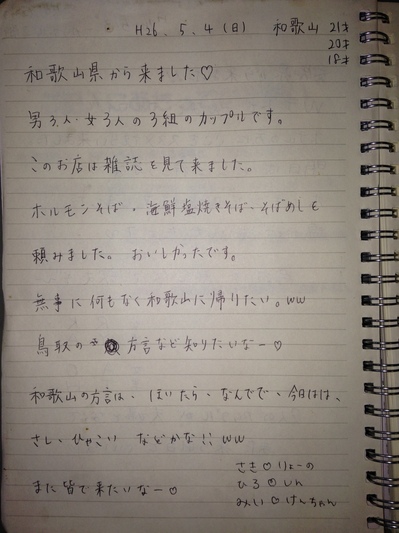 H26. 5. 4 (日) 和歌山 21才
20才
18才
和歌山県から来ました♡
男3人・女3人の3組のカップルです。
このお店は雑誌を見て来ました。
ホルモンそば・海鮮塩焼きそば・そばめしを
頼みました。おいしかったです。
無事に何もなく和歌山に帰りたい。ww
鳥取の 方言など知りたいなー♡
和歌山の方言は、ほいたら、なんでで、今日はは、
さし、ひゃこい などかな!! ww
また皆で来たいなー♡
さき♡りょーの
ひろ♡しん
みい♡けんちゃん